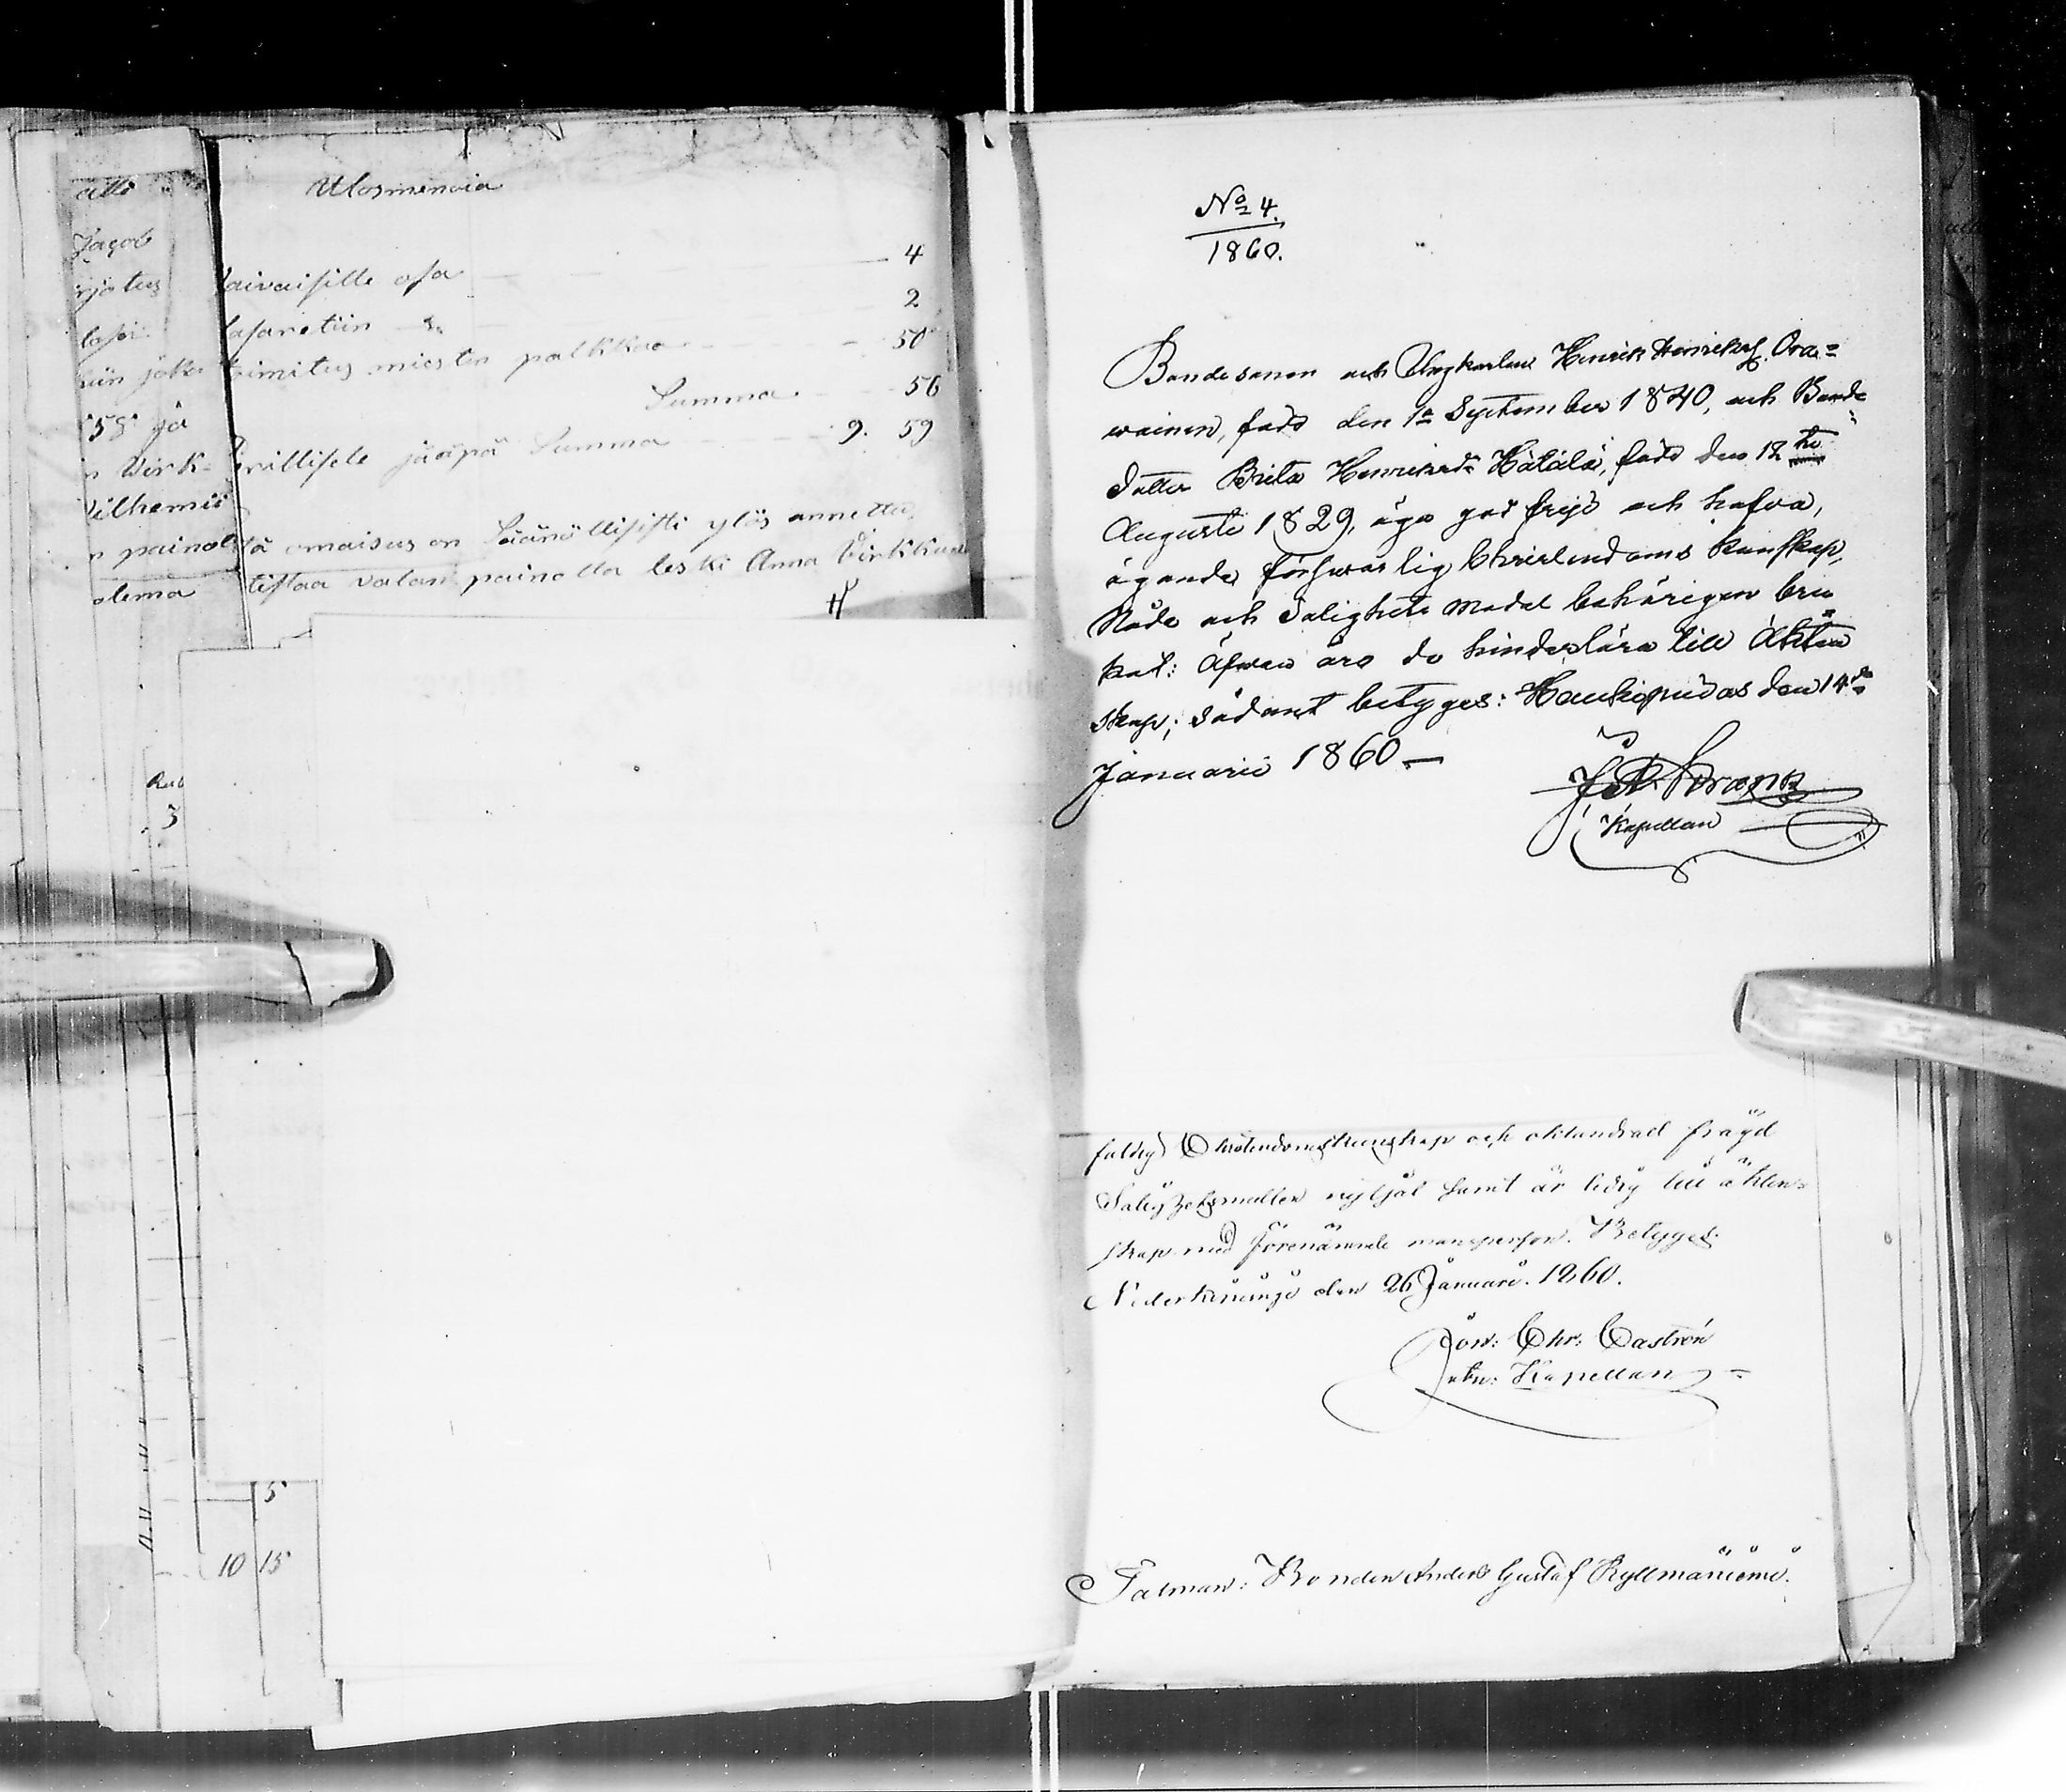 alle
Jacob
rjotus
lasi:
hin joka
58 ja
n Virk-
Vilhemii
n painol
olema
Ulosmenoia
Vaivaisille osa 4
Lasaretiin 2
toimitus miesten palkkaa 50
Summa 56
Perillisele jääpä Summa 9. 59
tä omaisus on Säänöllisisti ylös annettu,
tistaa valan painolla leski Anna Virkkunen
Rub
3
5
10 15
No 4.
1860.
Bondesonen och Ungkarlen Henrik Henrikss. Ora=
wainen, född den 1a September 1840, och Bonde
dotter Brita Henriksdr Hätälä, född den 12 te
Augusti 1829, äga god frejd och hafva,
ägande förswarlig Christendoms kunskap,
Nåde och Salighets medel behörigen bru
kat: Äfwen äro de hinderslösa till Äkten
skap; sådant betyges: Haukipudas den 14de
Januarii 1860 —
Kapellan
faldig Christendomskunskap och oklandrad frägd
Salighetsmedlen nyttjat samt är ledig till äkten=
skap med förenämnde mansperson. Betyges.
Nederkiminge den 26 Januari. 1860.
Jon: Chr: Castrén
Kapellan
Talman: Bonden Anders Gustaf Kyllmäniemi.